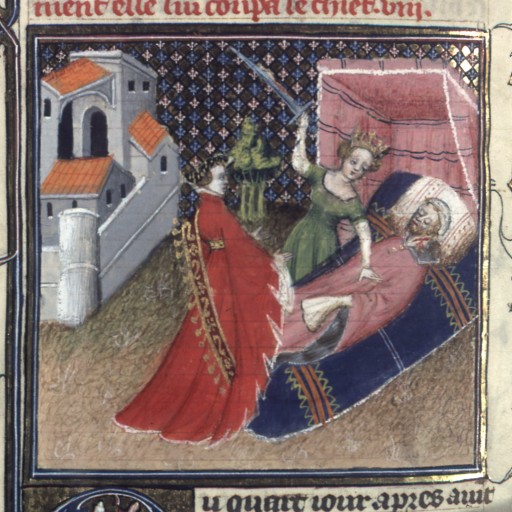 ment elle lui coupa le chief. viii.
u quart iour apres auit